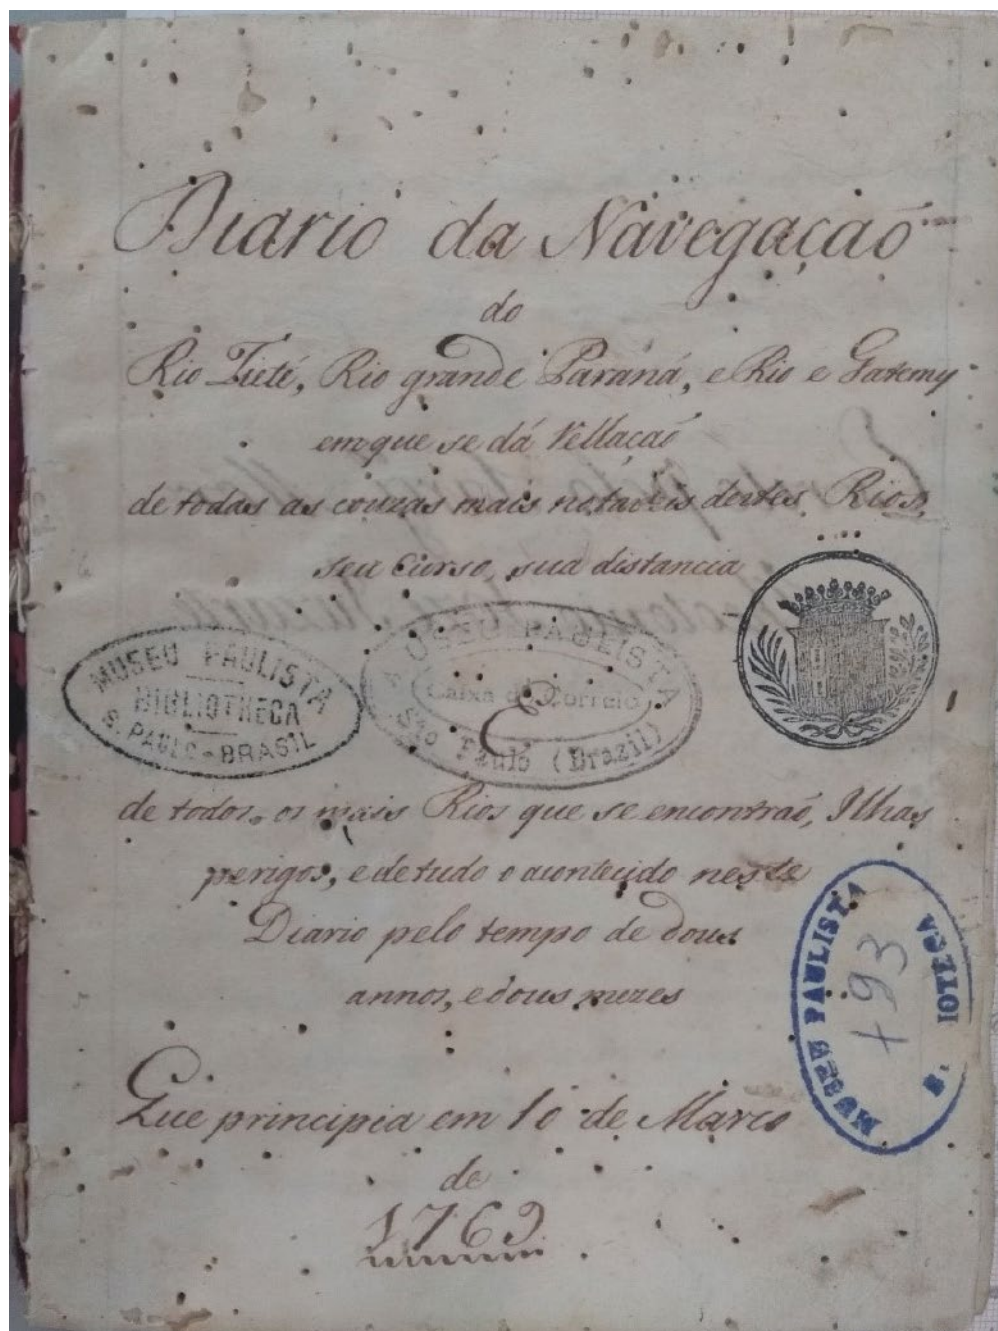 Diario da Navegação
do
Rio Tieté, Rio grande Paraná, e Rio e Gatemy
em que se dá Rellação
de todas as couzas mais notaveis destes Rios,
seu Curso, sua distancia
MUSEU PAULISTA
BIBLIOTHECA
S. PAULO-BRASIL
MUSEU PAULISTA
Caixa do Correio
São Paulo (Brazil)
E
de todos os mais Rios que se encontrão, Ilhas
perigos, e de tudo o acontecido neste
Diario pelo tempo de dous
annos, e dous mezes
MUSEU PAULISTA
193
IOTECA
Que principia em 10 de Março
de
1769